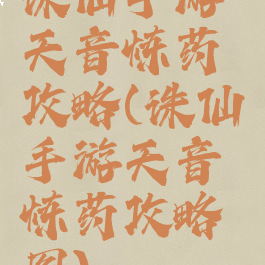 诛仙手游
天音炼药
攻略(诛仙
手游天音
炼药攻略
图)